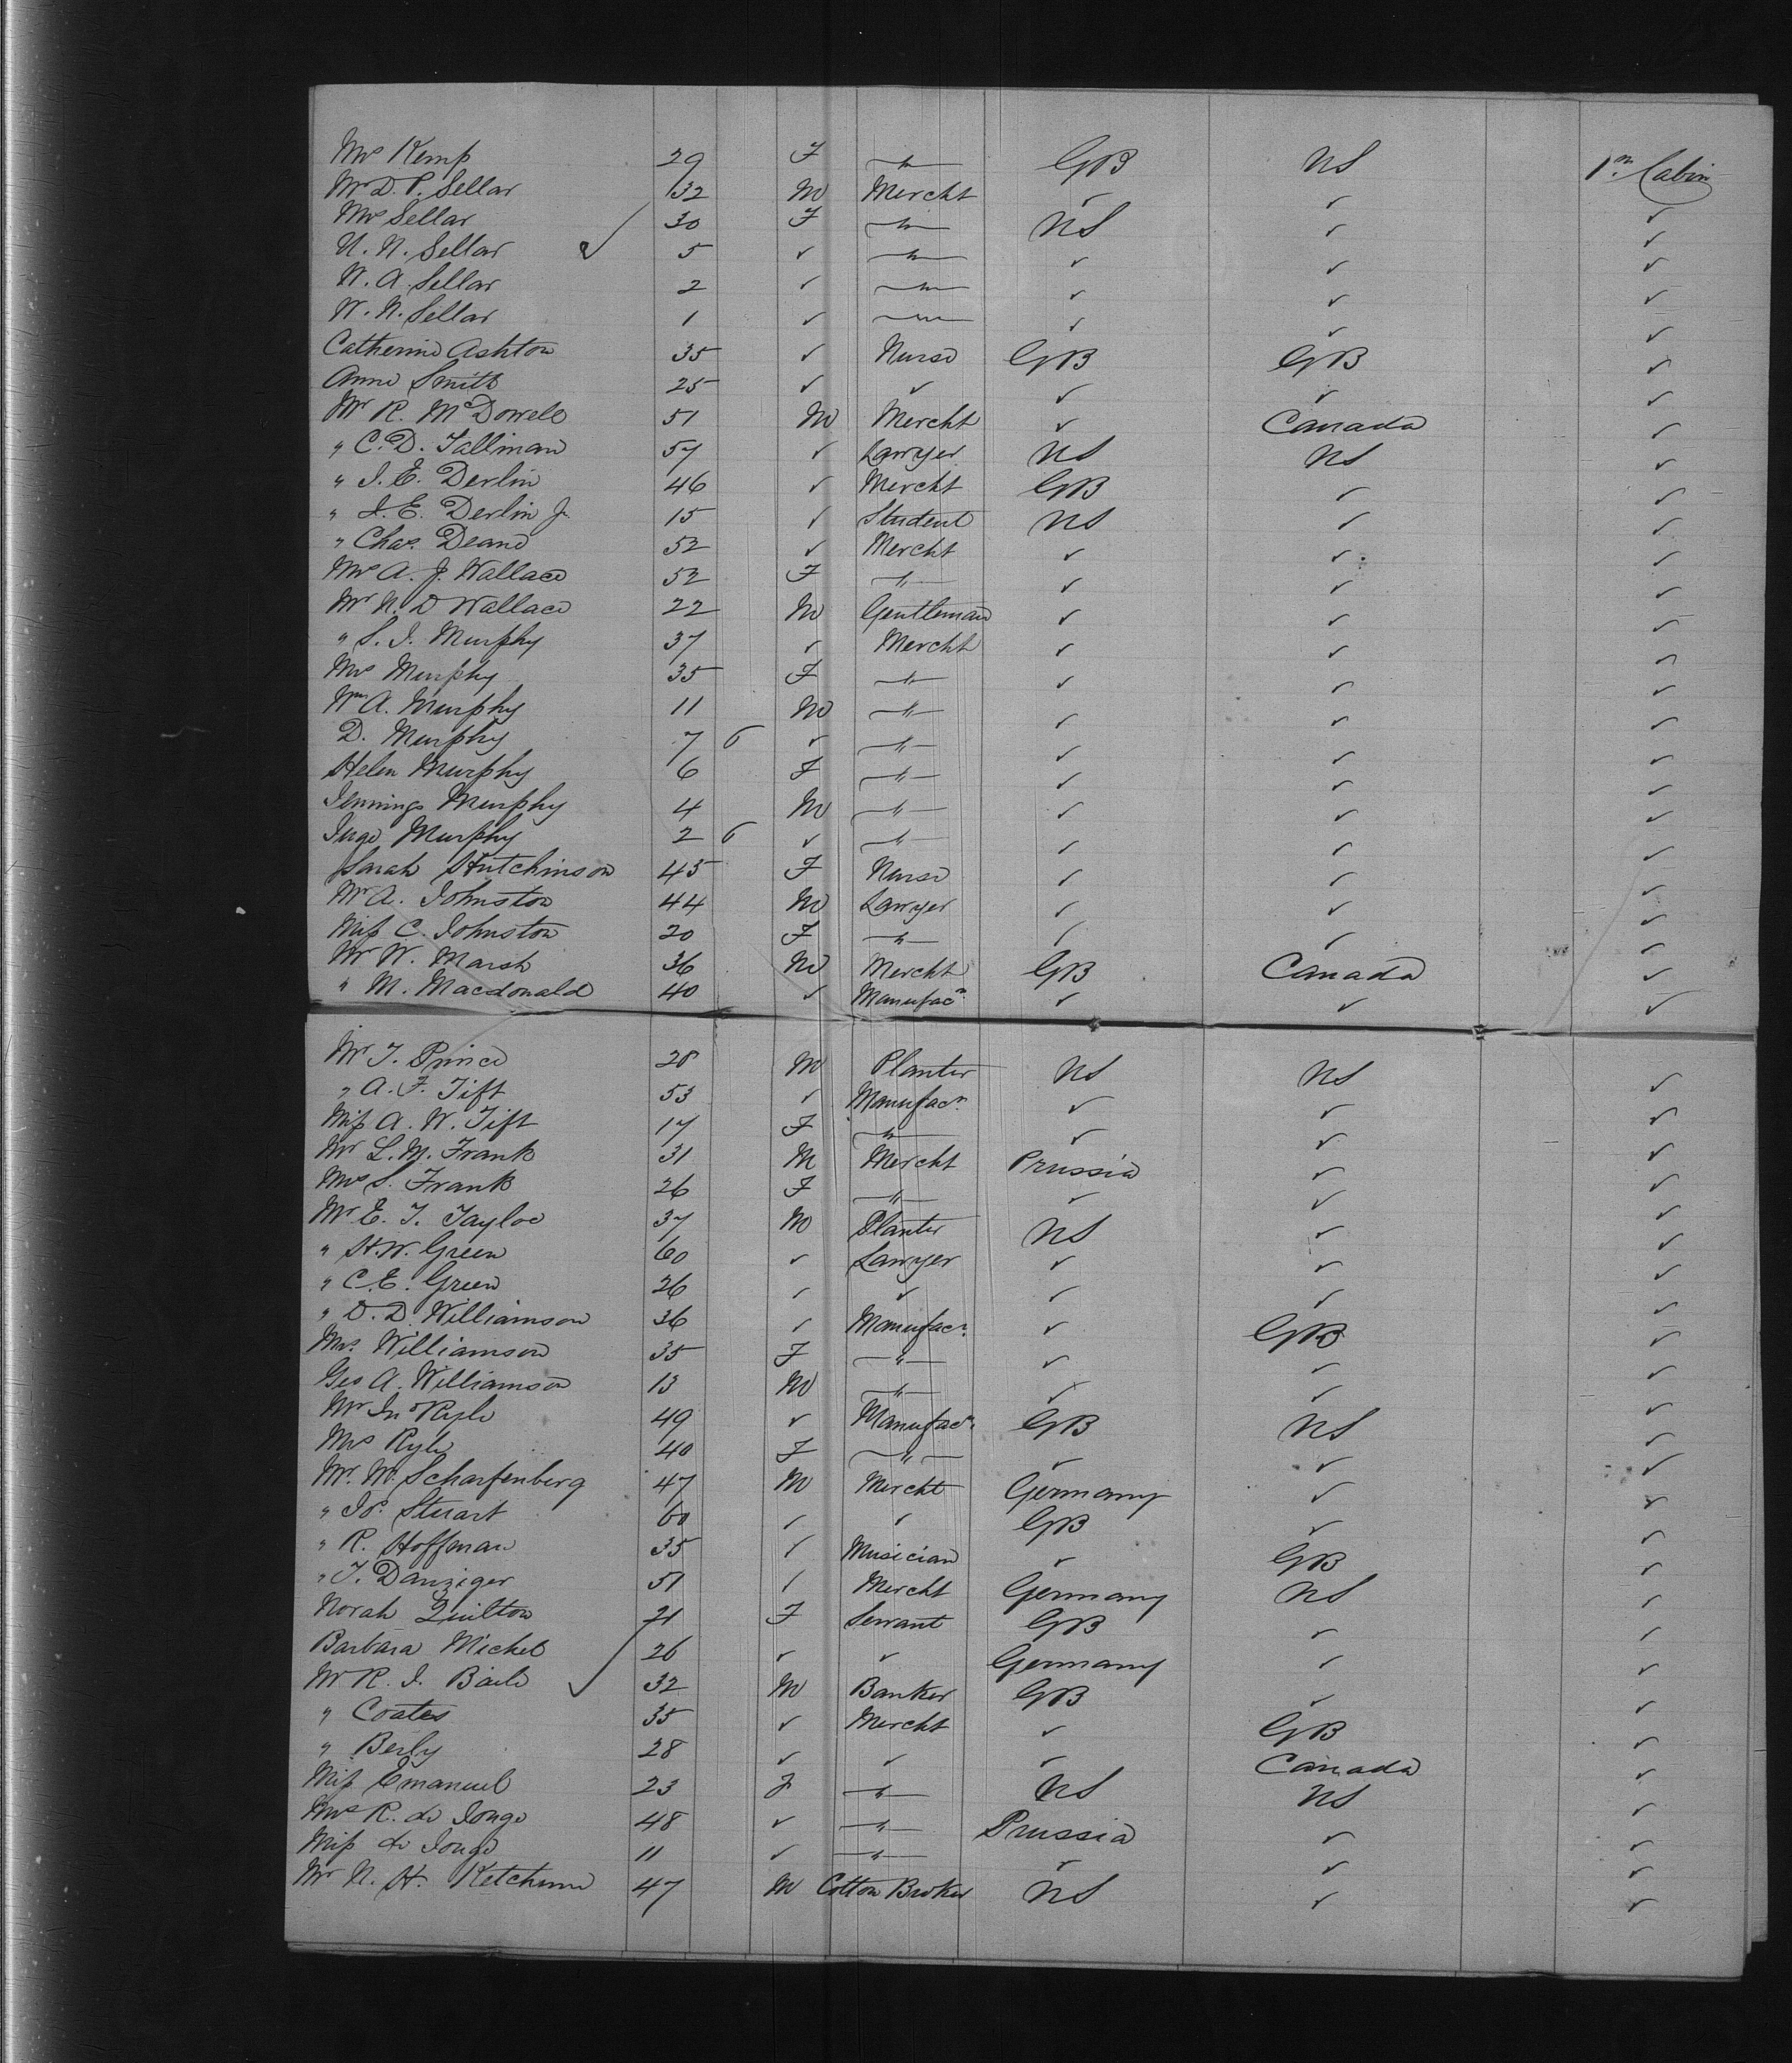 Mrs Kemp 29 F " GB US 1st Cabin
Mr D. P. Sellar 32 M Mercht ✓ ✓ ✓
Mrs Sellar 30 F " US ✓ ✓
N. N. Sellar ✓ 5 ✓ " ✓ ✓ ✓
N. A. Sellar 2 ✓ " ✓ ✓ ✓
W. N. Sellar 1 ✓ " ✓ ✓ ✓
Catherine Ashton 35 ✓ Nurse GB GB ✓
Anne Smith 25 ✓ ✓ ✓ ✓ ✓
Mr R. McDowell 51 M Mercht ✓ Canada ✓
" C. D. Tallman 57 ✓ Lawyer US US ✓
" J. E. Derlin 46 ✓ Mercht GB ✓ ✓
" J. E. Derlin Jr. 15 ✓ Student US ✓ ✓
" Chas. Deane 52 ✓ Mercht ✓ ✓ ✓
Mrs A. J. Wallace 52 F " ✓ ✓ ✓
Mr N. D Wallace 22 M Gentleman ✓ ✓ ✓
" S. J. Murphy 37 ✓ Mercht ✓ ✓ ✓
Mrs Murphy 35 F " ✓ ✓ ✓
Wm A. Murphy 11 M " ✓ ✓ ✓
D. Murphy 7 6 ✓ " ✓ ✓ ✓
Helen Murphy 6 F " ✓ ✓ ✓
Jennings Murphy 4 M " ✓ ✓ ✓
Inge Murphy 2 6 ✓ " ✓ ✓ ✓
Sarah Hutchinson 45 F Nurse ✓ ✓ ✓
Mr A. Johnston 44 M Lawyer ✓ ✓ ✓
Miss C. Johnston 20 F " ✓ ✓ ✓
Mr W. Marsh 36 M Mercht GB Canada ✓
" M. Macdonald 40 ✓ Manufacr ✓ ✓ ✓
Mr T. Prince 28 M Planter US US ✓
" A. F. Tift 53 ✓ Manufacr. ✓ ✓ ✓
Miss A. W. Tift 17 F " ✓ ✓ ✓
Mr L. M. Frank 31 M Mercht Prussia ✓ ✓
Mrs S. Frank 26 F " ✓ ✓ ✓
Mr E. T. Tayloe 37 M Planter US ✓ ✓
" H. W. Green 60 ✓ Lawyer ✓ ✓ ✓
" C. E. Green 26 ✓ ✓ ✓ ✓ ✓
" D. D. Williamson 36 ✓ Manufacr. ✓ GB ✓
Mrs. Williamson 35 F " ✓ ✓ ✓
Geo A. Williamson 13 M " ✓ ✓ ✓
Mr Jno Ryle 49 ✓ Manufacr. GB US ✓
Mrs Ryle 40 F " ✓ ✓ ✓
Mr. W. Scharfenberg 47 M Mercht Germany ✓ ✓
" Js. Stuart 60 ✓ ✓ GB ✓ ✓
" R. Hoffman 35 ✓ Musician ✓ GB ✓
" T. Danziger 51 ✓ Mercht Germany US ✓
Norah Quilton 21 F Servant GB ✓ ✓
Barbara Michel 26 ✓ ✓ Germany ✓ ✓
Mr R. J. Baile ✓ 32 M Banker GB ✓ ✓
" Coates 35 ✓ Mercht ✓ GB ✓
" Berly 28 ✓ ✓ ✓ Canada ✓
Miss Emanuel 23 F " US US ✓
Mrs R. de Jonge 48 ✓ " Prussia ✓ ✓
Miss de Jonge 11 ✓ " ✓ ✓ ✓
Mr N. H. Ketchum 47 M Cotton Broker US ✓ ✓